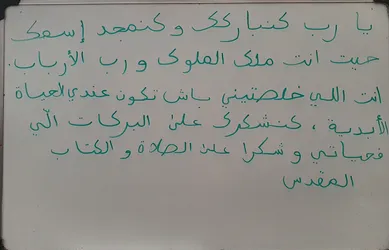 يا رب كنباركك و كنمجد إسمك
حيت انت ملك الملوك و رب الأرباب.
انت اللي خلصتيني باش تكون عندي الحياة
الأبدية ، كنشكرك على البركات الّي
فحياتي و شكرا على الصلاة و الكتاب
المقدس